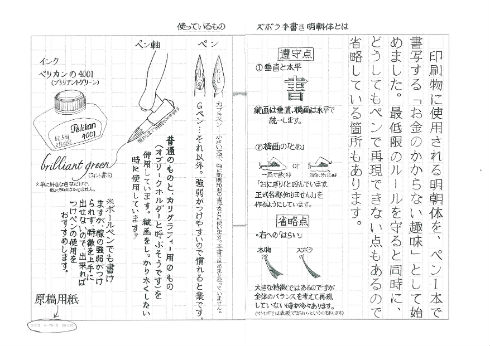 ズボラ手書き明朝体とは
印刷物に使用される明朝体を、ペン1本で
書写する「お金のかからない趣味」として始
めました。最低限のルールを守ると同時に、
どうしてもペンで再現できない点もあるので
省略している箇所もあります。
遵守点
①垂直と水平
書
縦画は垂直、横画は水平で
統一します。
②横画のとめ
省略点
・右への「はらい」
本物
ズボラ
大きな特徴ではあるのですが
全体のバランスを考えて再現
していない時が多々あります。
使っているもの
ペン
Gペン…それ以外。強弱がつけやすいので慣れると楽です。
ペン軸
普通のものと、カリグラフィー用のもの
(オブリークホルダーと呼ぶそうです)を
併用しています。縦画をしっかり太くしたい
時に使用しています。
インク
ペリカンの4001
(ブリリアントグリーン)
Pelikan
4001
brilliant green
※ボールペンでも書け
ますが、線の強弱がつけ
られず、特徴を上手に
出せないので、出来れば
つけペンの使用を
おすすめします。
原稿用紙